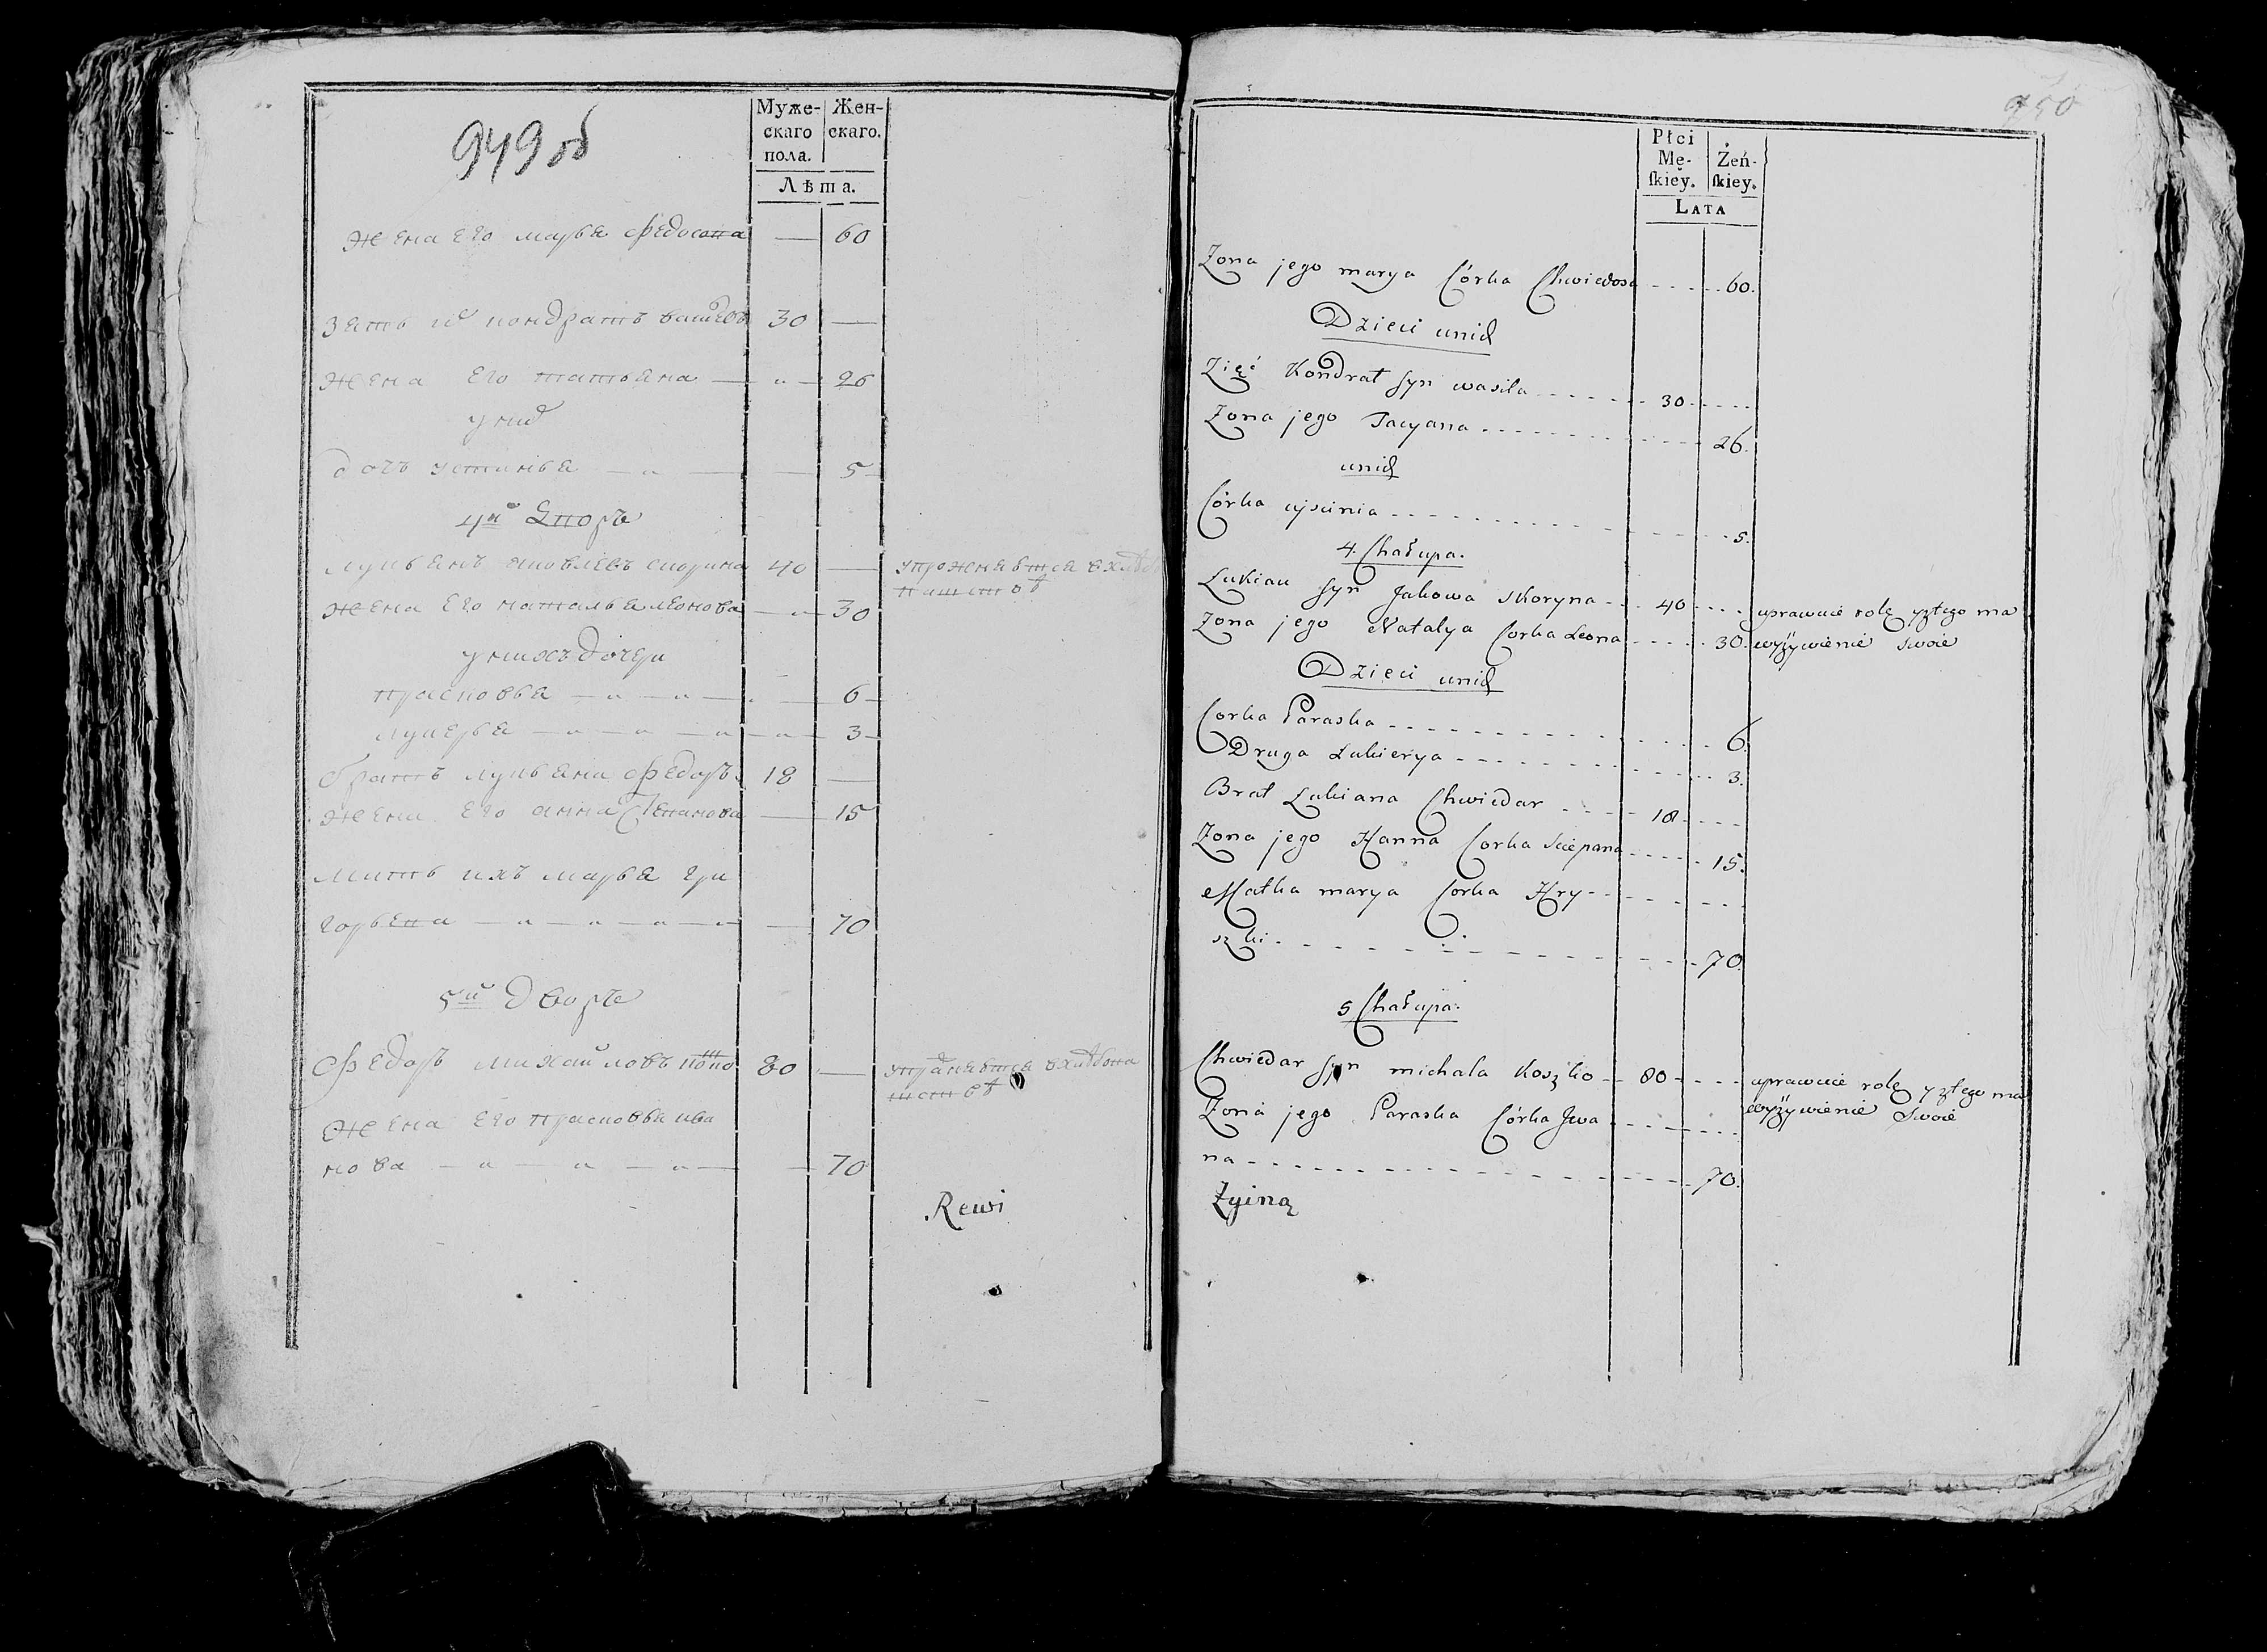 949 об
Муже- Жен-
скаго скаго.
пола.
Лѣта.
жена его марья федосова — 60
зять и кондратъ васиевъ 30 —
жена его татьяна — 26
у них
дочь устинья — 5
4й Дворъ
лукьянъ яковлевъ скорина 40 — упражняется в хлебо
пашестве
жена его наталья леонова — 30
у нихъ дочери
прасковья — 6
лукерья — 3
братъ лукьяна федоръ 18 —
жена его анна степанова — 15
мать ихъ марья гри
горьева — 70
5й дворъ
Федоръ михайловъ 80 — упражняется в хлебопа
шестве
жена его прасковья ива
нова — 70
Rewi
950
Płci
Mę- Żeń-
skiey. skiey.
LATA
Zona jego marya Córka Chwiedosa 60.
Dzieci unich
Zięć Kondrat syn wasila 30
Zona jego Tacyana 26.
unich
Córka ujscinia 5.
4. Chałupa.
Lukian syn Jakowa Skoryna 40 uprawuie rolę y ztego ma
Zona jego Natalya Corka Leona 30. wyżywienie swoie
Dzieci unich
Corka Paraska 6
Druga Lukierya 3.
Brat Lukiana Chwiedar 18
Zona jego Hanna Corka Sciepana 15.
Matka marya Corka Hry-
szki 70.
5 Chałupa.
Chwiedar syn michala Koszko 80 uprawuie rolę y ztego ma
wyżywienie Swoie
Zona jego Paraska Córka Jwa
na 70.
Zyiną